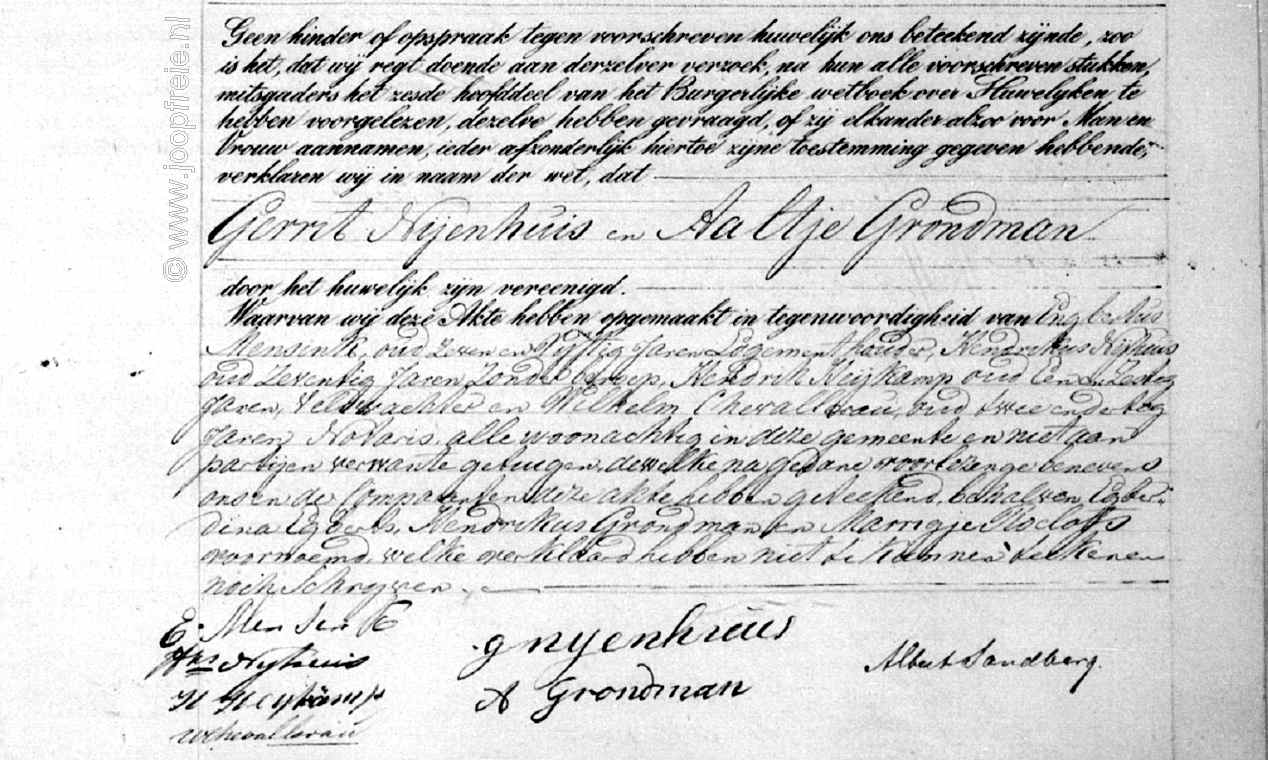 Geen hinder of opspraak tegen voorschreven huwelijk ons beteekend zijnde, zoo
is het, dat wij regt doende aan derzelver verzoek, na hun alle voorschreven stukken,
mitsgaders het zesde hoofddeel van het Burgerlijke wetboek over Huwelyken te
hebben voorgelezen, dezelve hebben gevraagd, of zij elkander alzoo voor Man en
Vrouw aannamen, ieder afzonderlijk hiertoe zijne toestemming gegeven hebbende,
verklaren wij in naam der wet, dat
Gerrit Nijenhuis en Aaltje Grondman
door het huwelijk zijn vereenigd.
Waarvan wij deze Akte hebben opgemaakt in tegenwoordigheid van Engbertus
Mensink, oud zeven en vyftig Jaren Logementhouder, Hendrikus Nijhuis
oud Zeventig Jaren Zonder beroep, Hendrik Heijkamp oud Een en
Jaren, Veldwachter en Wilhelm Chevallerau, oud twee en dertig
Jaren Notaris, alle woonachtig in deze gemeente en niet aan
partijen verwante getuigen, dewelke na gedane voorlezing benevens
ons en de Comparanten deze akte hebben geteekend, behalven Egber-
dina Egberts, Hendrikus Grondman en Marrigje Roelofs
voornoemd, welke verklaard hebben niet te kunnen teekenen
noch Schryven.
E. Mensink
Hks Nyhuis
H Heykamp
W Chevallerau
g nyenhuis
A Grondman
Albert Sandberg.
© www.joopfreie.nl